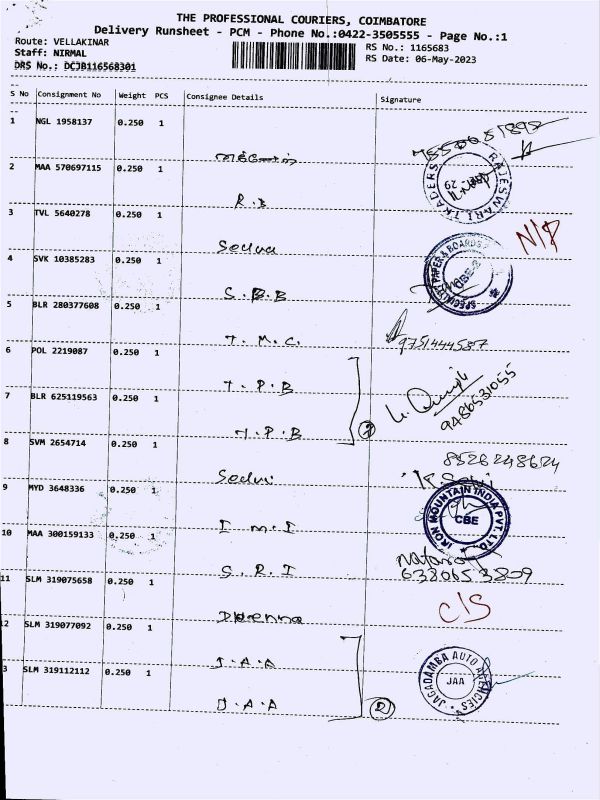 THE PROFESSIONAL COURIERS, COIMBATORE
Delivery Runsheet - PCM - Phone No.:0422-3505555 - Page No.:1
Route: VELLAKINAR
RS No.: 1165683
Staff: NIRMAL
RS Date: 06-May-2023
DRS No.: DCJB116568301
S No Consignment No Weight PCS Consignee Details Signature
1 NGL 1958137 0.250 1
2 MAA 570697115 0.250 1 R.I RAJESWARI TRADERS 29
3 TVL 5640278 0.250 1 N/P
4 SVK 10385283 0.250 1 S.B.B PAPER & BOARDS CBE-2
5 BLR 280377608 0.250 1 T.M.C. 9751444587
6 POL 2219087 0.250 1 T.P.B
7 BLR 625119563 0.250 1 T.P.B 2 9486531055
8 SVM 2654714 0.250 1 8526248624
9 MYD 3648336 0.250 1 I M I IRON MOUNTAIN INDIA PVT. LTD. CBE
10 MAA 300159133 0.250 1 S.R.I
11 SLM 319075658 0.250 1 C/S
12 SLM 319077092 0.250 1 J.A.A
3 SLM 319112112 0.250 1 J.A.A 2 JAGADAMBA AUTO AGENCIES JAA